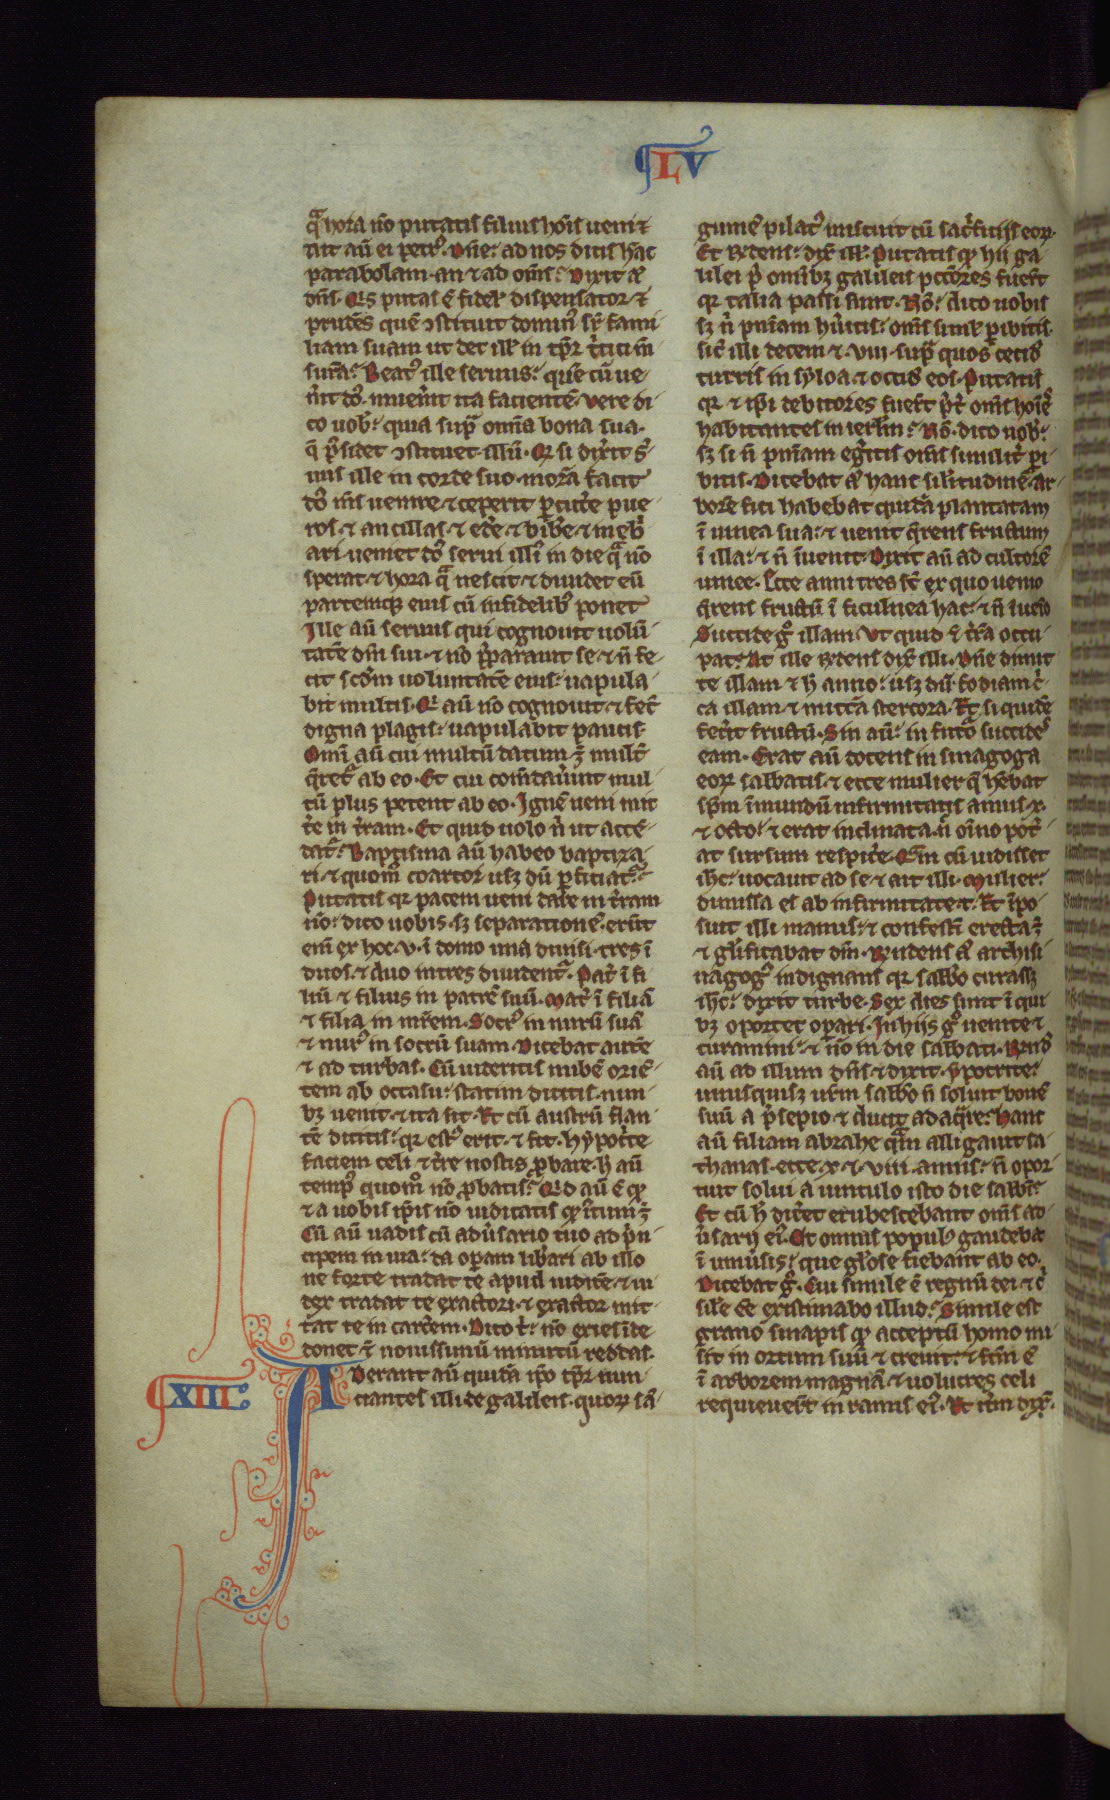 LV
qͣ hora nō putatis filius hoīs ueniet
Ait aū ei petrꝰ. Dn̄e: ad nos dicis hāc
parabolam. an ⁊ ad om̄s? Dixit aͤ
dn̄s. Qͥs putas ē fidelꝭ dispensator ⁊
prudēs quē ↄstituit dominꝰ sr̄ fami
liam suam ut det illꝭ in tp̄r tͥtici m̄
surā? Beatꝰ ille seruus: quē cū ue
n̄it dn̄s. inuen̄it ita facientē. Vere di
co uob̄: quia supͣ omīa bona sua.
q̄ p̄sidet ↄstituet illū. Qd̄ si dix̄it s̄
uus ille in corde suo. morā facit
dn̄s m̄s uenire. ⁊ ceperit ꝑcut̄e pue
ros. ⁊ ancillas. ⁊ ed̄e. ⁊ bib̄e ⁊ ineb̄
ari. ueniet dn̄s serui illīꝰ in die qͣ nō
sperat. ⁊ hora qͣ nescit. ⁊ diuidet eū
partemqꝫ eius cū infidelibꝰ ponet
Ille aū seruus qui cognouit uolū-
tatē dn̄i sui. ⁊ nō p̄parauit se ⁊ n̄ fe
cit scd̄m uoluntatē eius: uapula-
bit multis. Qͥ aū nō cognouit ⁊ fec̄
digna plagis: uapulabit paucis.
Omī aū cui multū datum ē. mult̄
q̄ret̄ ab eo. Et cui com̄dau̅unt mul-
tū plus petent ab eo. Ignē ueni mit
t̄e in t̄ram. Et quid uolo n̄ ut accē-
dat̄? Baptisma aū habeo baptiza
ri. ⁊ quom̄ coartor usqꝫ dū ꝑficiat̄?
Putatis qꝛ pacem ueni dare in t̄ram
nō: dico uobis. sꝫ separationē. erūt
enī ex hoc. v. ī domo una diuisi. tres ī
duos. ⁊ duo in tres diuident̄. Pat̄ ī fi
liū ⁊ filius in patrē suū. Mat̄ ī filiā
⁊ filia in mr̄em. Socrꝰ in nurū suā
⁊ nurꝰ in socrū suam. Dicebat autē
⁊ ad turbas. Cū uideritis nubē oriē-
tem ab occasu: statim dicitis. nim-
bꝫ uenit. ⁊ ita fit. Et cū austrū flan-
tē dicitis: qꝛ estꝰ erit. ⁊ fit. Hypoc̄te
faciem celi ⁊ t̄re nostis ꝓbare. h̄ aū
tempꝰ quom̄ nō ꝓbatis? Qd̄ aū ē qͩ
⁊ a uobis ip̄is nō iudicatis qͩ iustum ē
Cū aū uadis cū adu̅sario tuo ad p̄n
cipem in uia: da opam lib̄ari ab illo
ne forte tradat te apud iudicē ⁊ iu
dex tradat te exactori. ⁊ exactor mit-
tat te in carc̄em. Dico t̄: nō exies īde
donec ⁊ nouissimū minutū reddas.
XIII
Aderant aū quidā ip̄o tp̄r nun-
ciantes illi de galileis. quoꝝ sā-
guinē pilatꝰ miscuit cū sac̄ficiis eoꝝ.
Et r̄ndens: dix̄ illꝭ. Putatis qͩ hii ga
lilei p̄ omībꝫ galileis pcc̄ores fuer̄t
qꝛ talia passi sunt. Nō: dico uobis
sꝫ n̄ pn̄iam h̄u̅itis: om̄s simlꝭ ꝑibitis.
sic̄ illi decem ⁊. viii. supͣ quos cecid̄
turris in syloa. ⁊ occid̄ eos. Putatis
qꝛ ⁊ ip̄i debitores fuer̄t p̄t̄ om̄s hoīes
habitantes in ierl̄m? Nō. dico uob̄:
sꝫ si n̄ pn̄iam eḡitis om̄s similit̄ ꝑi-
bitis. Dicebat aͤ hanc sil̄itudinē. ar-
borē fici habebat quidā plantatam
ī uinea sua: ⁊ uenit q̄rens fructum
ī illa: ⁊ n̄ īuenit. Dixit aū ad cultorē
uinee. Ecce anni tres s̄t ex quo uenio
q̄rens fructū ī ficulnea hac: ⁊ n̄ īuēio
Succide gͦ illam. Vt quid ⁊ t̄rā occu
pat? At ille r̄ndens dix̄ illi. Dn̄e dimit
te illam ⁊ h̄ anno: usqꝫ dū fodiam c̄
ca illam ⁊ mittā stercora. Et si quidē
fec̄it fructū. Sin aū: in fut̄o succides
eam. Erat aū docens in sinagoga
eoꝝ sabbatis. ⁊ ecce mulier q̄ h̄ebat
sp̄m īmundū infirmitatis annis. x.
⁊ octo: ⁊ erat inclinata. n̄ oīno pot̄-
at sursum respic̄e. Qͣm cū uidisset
ih̄c: uocauit ad se ⁊ ait illi. Mulier:
dimissa es ab infirmitate t̄. Et īpo
suit illi manus: ⁊ confestī erecta ē
⁊ gl̄ificabat dm̄. R̄ndens aͤ archisi
nagogꝰ indignans qꝛ sabb̄o curass̄
ih̄c: dixit turbe. Sex dies sunt ī qui
bꝫ oportet oꝑari. In hiis gͦ uenite ⁊
curamini: ⁊ nō in die sabbati. R̄nd̄
aū ad illum dn̄s ⁊ dixit. ypocrite:
unusquisqꝫ ur̄m sabb̄o n̄ soluit bouē
suū a p̄sepio ⁊ ducit adaq̄re? Hanc
aū filiam abrahe qͣm alligauit sa-
thanas. ecce. x. ⁊. viii. annis: n̄ opor
tuit solui a uinculo isto die sabb̄i?
Et cū h̄ dic̄et erubescebant om̄s ad-
u̅sarij eiꝰ. Et omnis populꝰ gaudebā
ī uniu̅sis: que gl̄ose fiebant ab eo.
Dicebat gͦ. Cui simile ē regnū dei. ⁊ c̄
sil̄e ēē existimabo illud? Simile est
grano sinapis qͩ acceptū homo mi
sit in ortum suū ⁊ creuit: ⁊ fc̄m ē
ī arborem magnā ⁊ uolucres celi
requieuer̄t in ramis eiꝰ. Et it̄m dix̄.